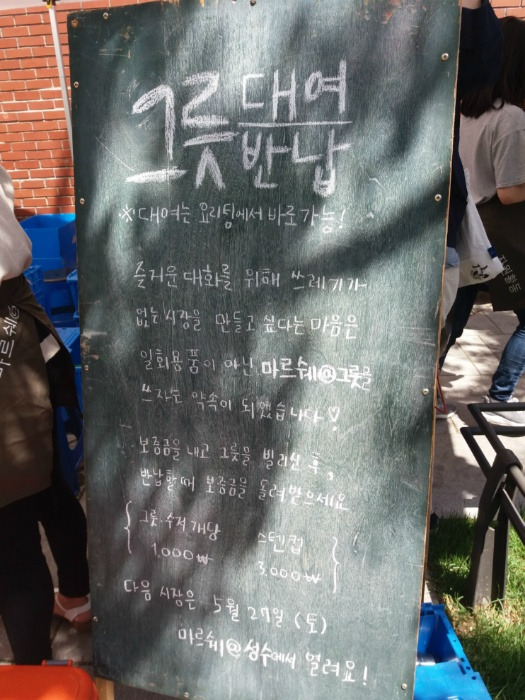 그릇 대여
반납
※ 대여는 요리팀에서 바로 가능!
즐거운 대화를 위해 쓰레기가
없는 시장을 만들고 싶다는 마음은
일회용품이 아닌 마르쉐@그릇을
쓰자는 약속이 되었습니다♡
보증금을 내고 그릇을 빌리신 후,
반납할 때 보증금을 돌려받으세요
{ 그릇·수저 개당 스텐컵 }
1,000₩ 3,000₩
다음 시장은 5월 27일 (토)
마르쉐@성수에서 열려요!
마르쉐@